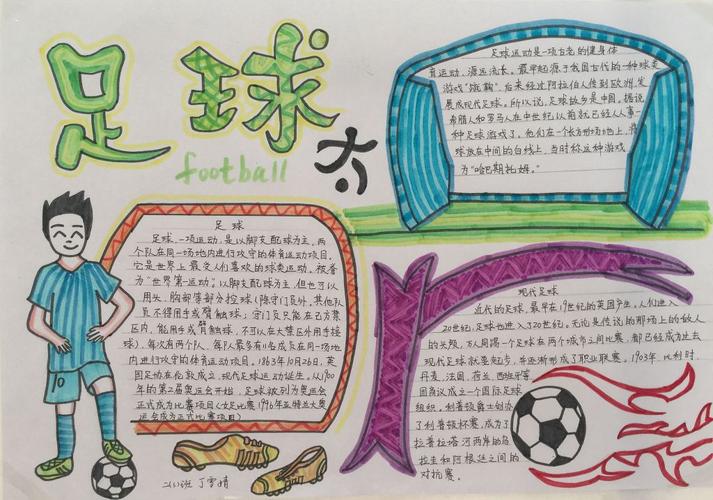 足球
football
足球运动是一项古老的健身体
育运动，源远流长。最早起源于我国古代的一种球类
游戏"蹴鞠"，后来经过阿拉伯人传到欧洲，发
展成现代足球。所以说，足球故乡是中国。据说，
希腊人和罗马人在中世纪以前就已经从事一
种足球游戏了。他们在一个长方形场地上，将
球放在中间的白线上，当时称这种游戏
为"哈巴斯托姆。"
足球
足球，一项运动，是以脚支配球为主，两
个队在同一场地内进行攻守的体育运动项目。
它是世界上最受人们喜欢的球类运动，被誉
为"世界第一运动"。以脚支配球为主，但也可以
用头、胸部等部分控球（除守门员外，其他队
员不得用手或臂触球；守门员只能在己方禁
区内，能用手或臂触球，不可以在大禁区外用手接
球）。每次有两个队，每队最多有11名成员在同一场地
内进行攻守的体育运动项目。1863年10月26日，英
国足协在伦敦成立，现代足球运动诞生。从1900
年的第2届奥运会开始，足球被列为奥运会
正式比赛项目（女足比赛1996年亚特兰大奥
运会成为正式比赛项目）
现代足球
近代的足球，最早在19世纪的英国产生。人们进入
20世纪，足球也进入了20世纪。无论是传说的那场上的敌人
的头颅，万人用踢一个足球在两个城市之间比赛，都已经成为过去
现代足球就要起步，并逐渐形成了职业联赛。1903年，比利时，
丹麦，法国，荷兰，西班牙等
国商议成立一个国际足球
组织，利普顿爵士创办
了利普顿杯赛，成为了
拉普拉塔河两岸的乌
拉圭和阿根廷之间的
对抗赛。
丁雪婧